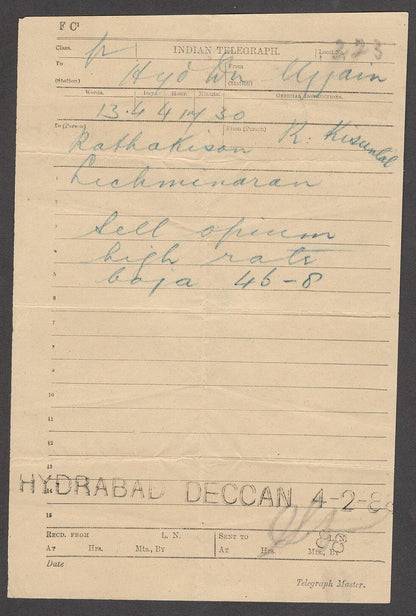 F C¹
Class. P INDIAN TELEGRAPH. Local No. 223
To Hyd Dn From Ujjain
(Station) (Station)
Words. Days. Hour. Minute. Official Instructions.
13 4 4 14 30
To (Person) From (Person) K. Kisunlal
Rathakison
Lechminaran
Sell opium
high rate
boja 46-8
HYDRABAD DECCAN 4-2-8
Recd. from L. N. Sent to L.N.
At Hrs. Mts., By At Hrs. Mts., By
Date
Telegraph Master.